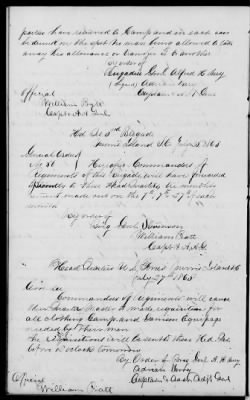 parties have returned to Camp and in each case
be dined on the spot, no man being allowed to take
away his allowance or Canteen to another
By order of
Brigadier Genl Alfred H. Terry
(Signed) Adrian Terry
Captain & A A Genl
Official
William Pratt
Capt & A. A. Genl
Hd Qrs 3rd Brigade
Morris Island SC July 1863
General Orders
No
Commanders of
Regiments of this Brigade will have forwarded
to these Head Quarters
made out on the of each
month
By order of
Brig Genl Stevenson
William Pratt
Capt & A.A.G.
Head Quarters U.S. Forces Morris Island SC
July 27th 1863
Commanders of Regiments will cause
their Quarter Masters to make requisitions for
all clothing Camp and Garrison Equipage
needed by their men
The requisitions will be sent to these Hd. Qrs.
o'clock tomorrow
By Order of Brig Genl A H Terry
Adrian Terry
Captain & Asst Adjt Genl
Official
William Pratt